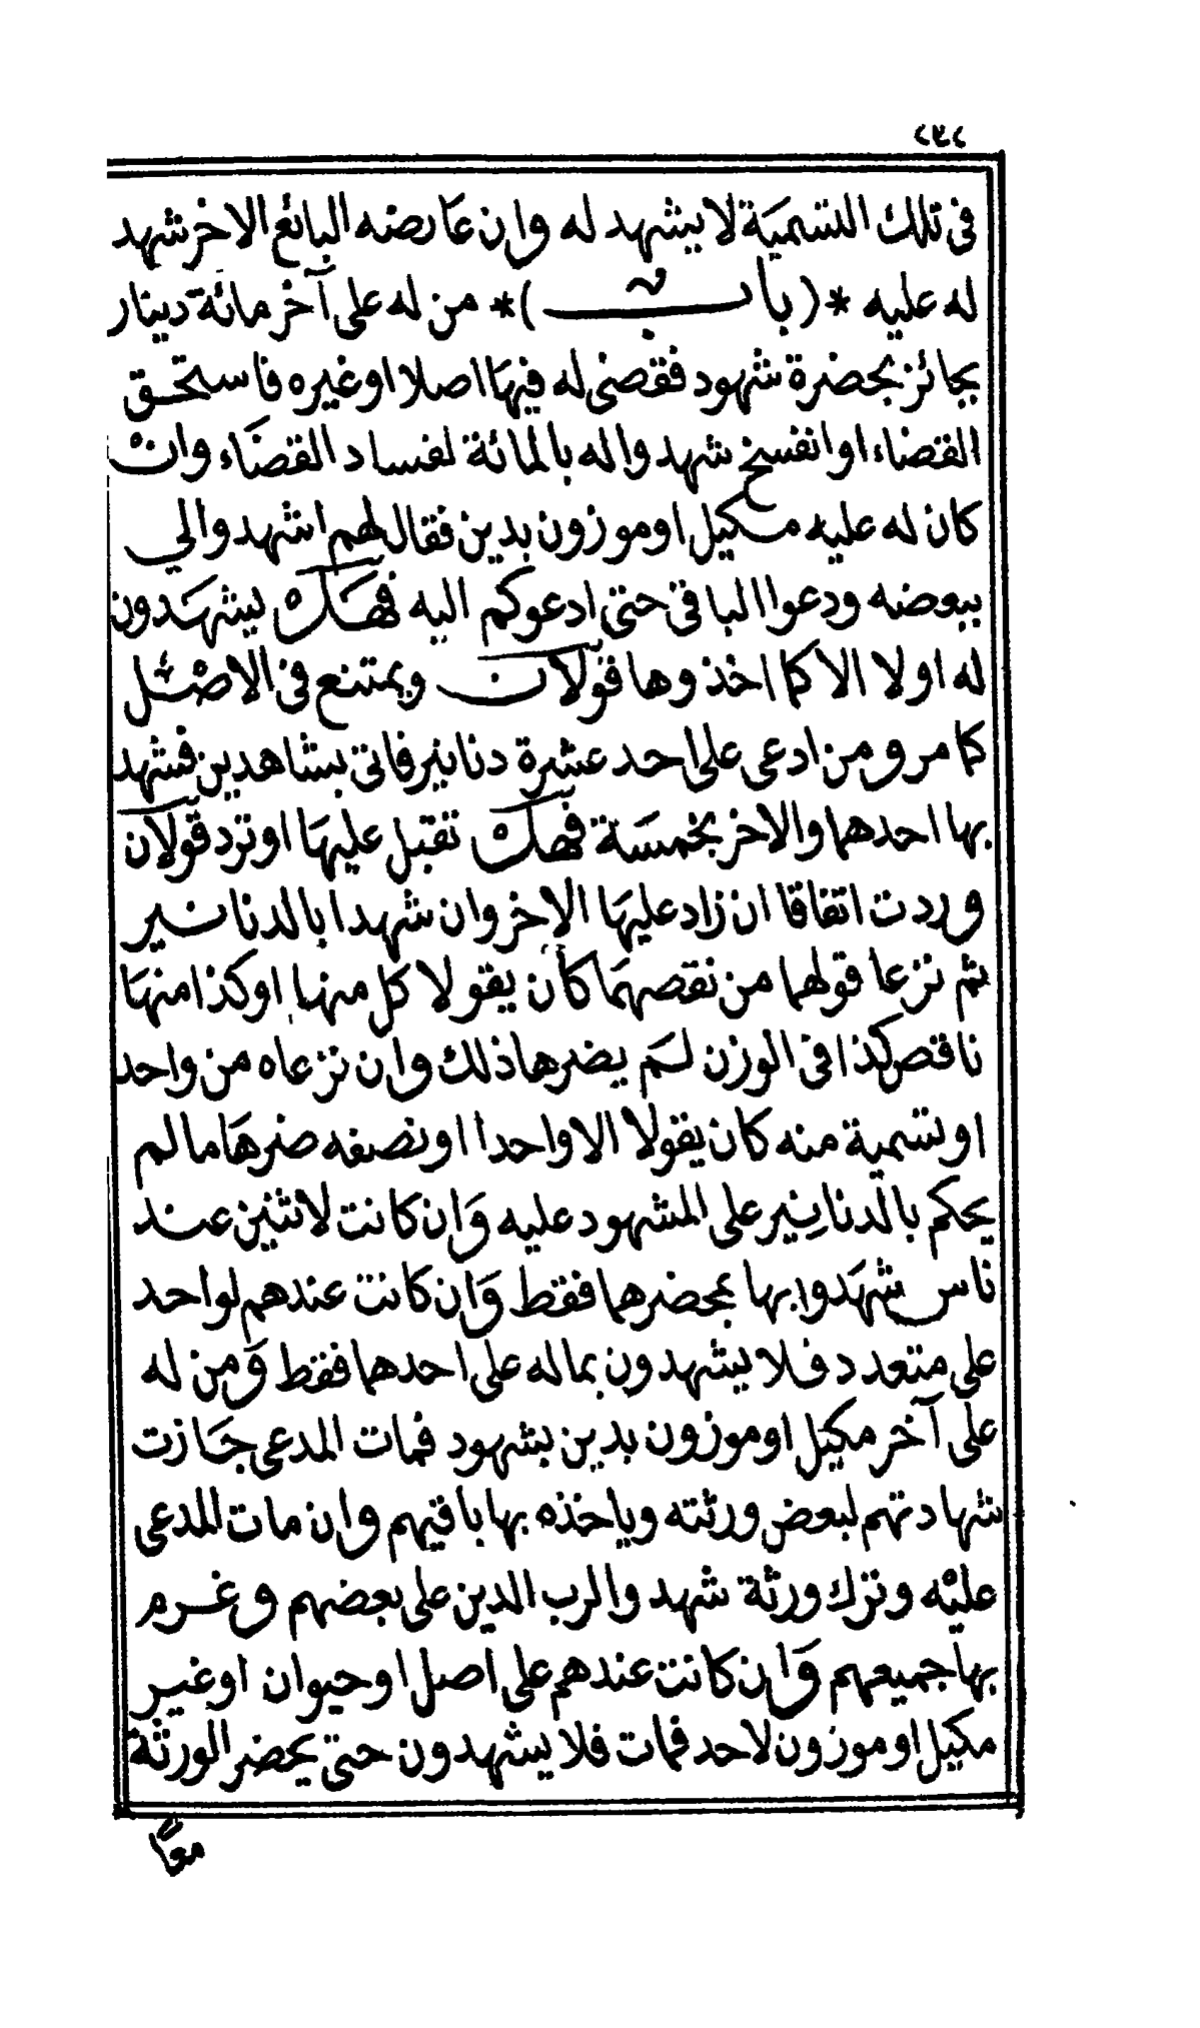 ٢٤٢
فى تلك التسمية لا يشهد له وان عارضه البائع الاخر شهد
له عليه *( باب )* من له على آخر مائة دينار
بجائز بحضرة شهود فقضى له فيها اصلا او غيره فاستحق
القضاء او انفسخ شهدوا له بالمائة لفساد القضاء وان
كان له عليه مكيل او موزون بدين فقال لهم اشهدوا لي
ببعضه ودعوا الباقى حتى ادعوكم اليه فهل يشهدون
له اولا الا كما اخذوها قولان ويمتنع فى الاصل
كما مر ومن ادعى على احد عشرة دنانير فاتى بشاهدين فشهد
بها احدهما والاخر بخمسة فهل تقبل عليها او ترد قولان
وردت اتفاقا ان زاد عليها الاخر وان شهدا بالدنانير
ثم نزعا قولهما من نقصهما كأن يقولا كل منها او كذا منها
ناقص كذا فى الوزن لم يضرها ذلك وان نزعاه من واحد
او تسمية منه كان يقولا الا واحدا او نصفه ضرها ما لم
يحكم بالدنانير على المشهود عليه وان كانت لاثنين عند
ناس شهدوا بها بمحضرهما فقط وان كانت عندهم لواحد
على متعدد فلا يشهدون بماله على احدهما فقط ومن له
على آخر مكيل او موزون بدين بشهود فمات المدعى جازت
شهادتهم لبعض ورثته وياخذه بها باقيهم وان مات المدعى
عليه وترك ورثة شهدوا لرب الدين على بعضهم وغرم
بها جميعهم وان كانت عندهم على اصل او حيوان او غير
مكيل او موزون لاحد فمات فلا يشهدون حتى يحضر الورثة
معا